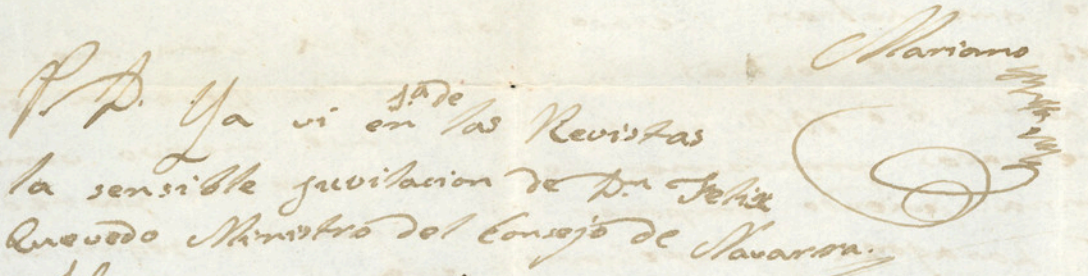 Mariano
P. D. Ya vi en 1ª de las Revistas
la sensible juvilacion de Dn. Felix
Quevedo Ministro del Consejo de Navarra.